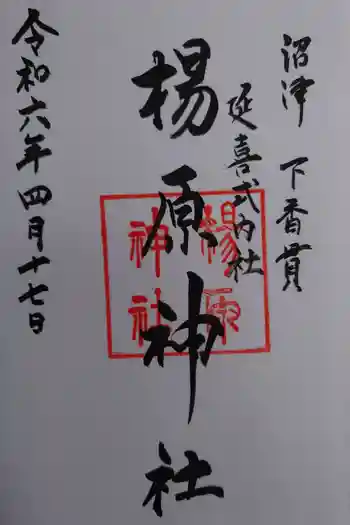 沼津 下香貫
延喜式内社
楊原神社
令和六年四月十七日
楊原
神社